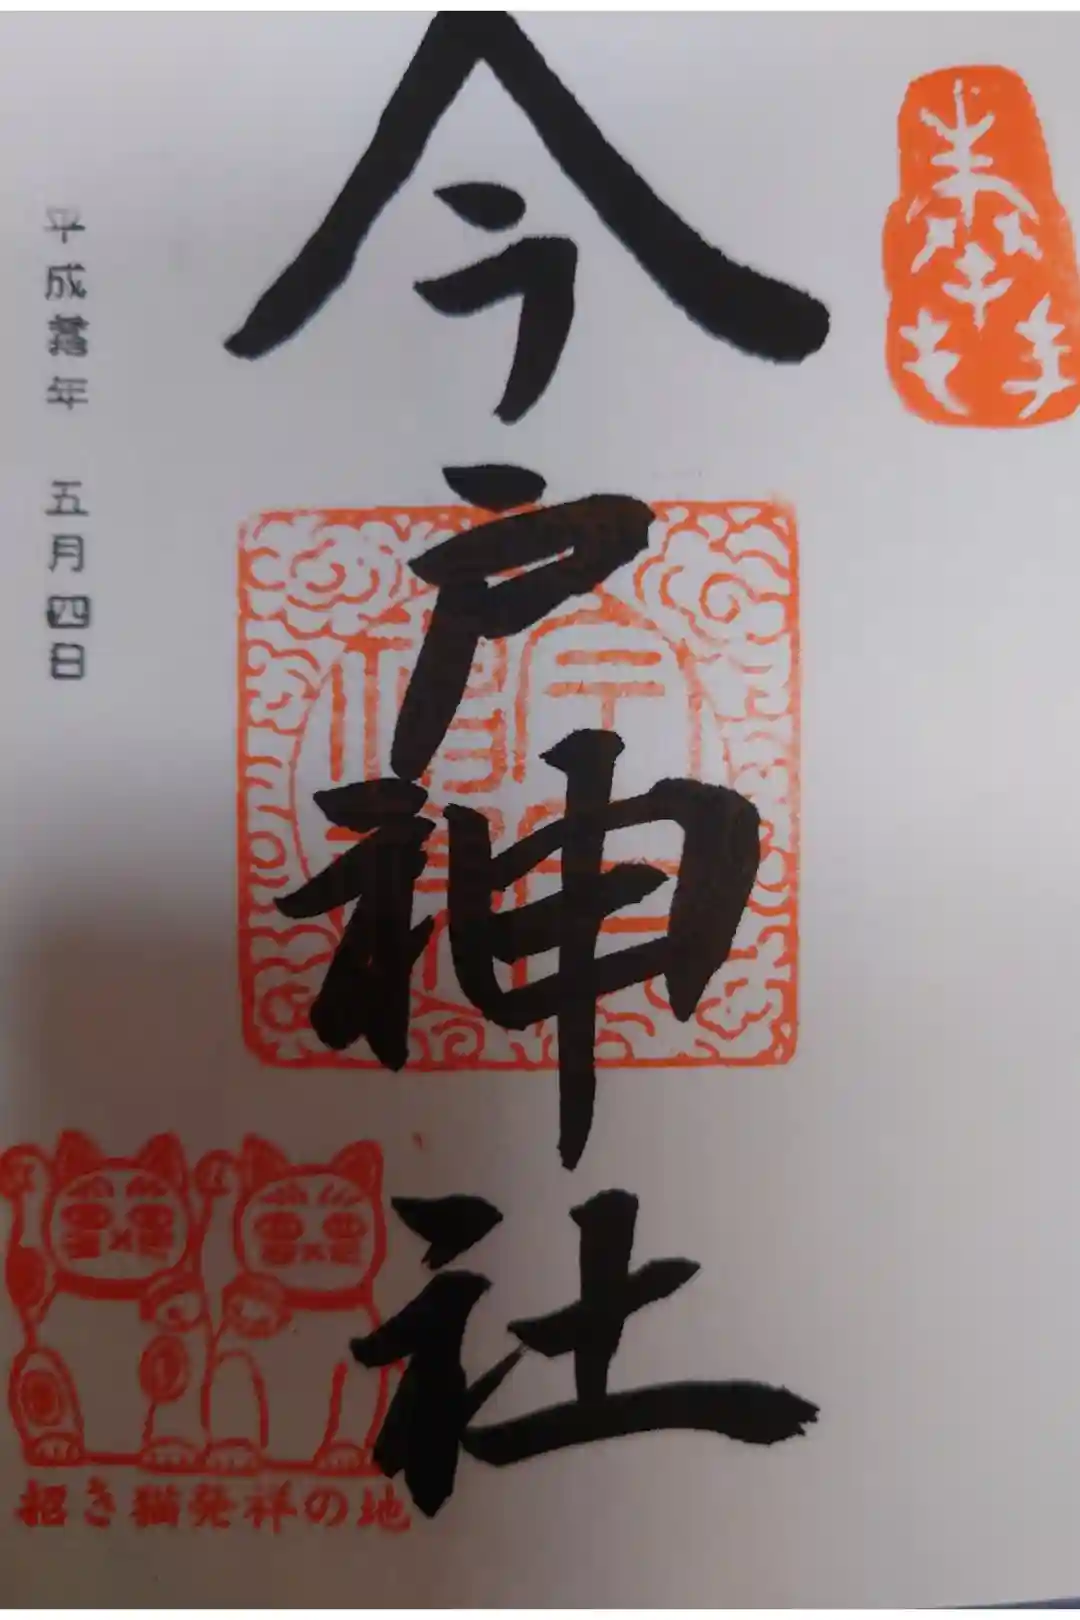 奉拝
今戸神社
平成年 五月四日
招き猫発祥の地